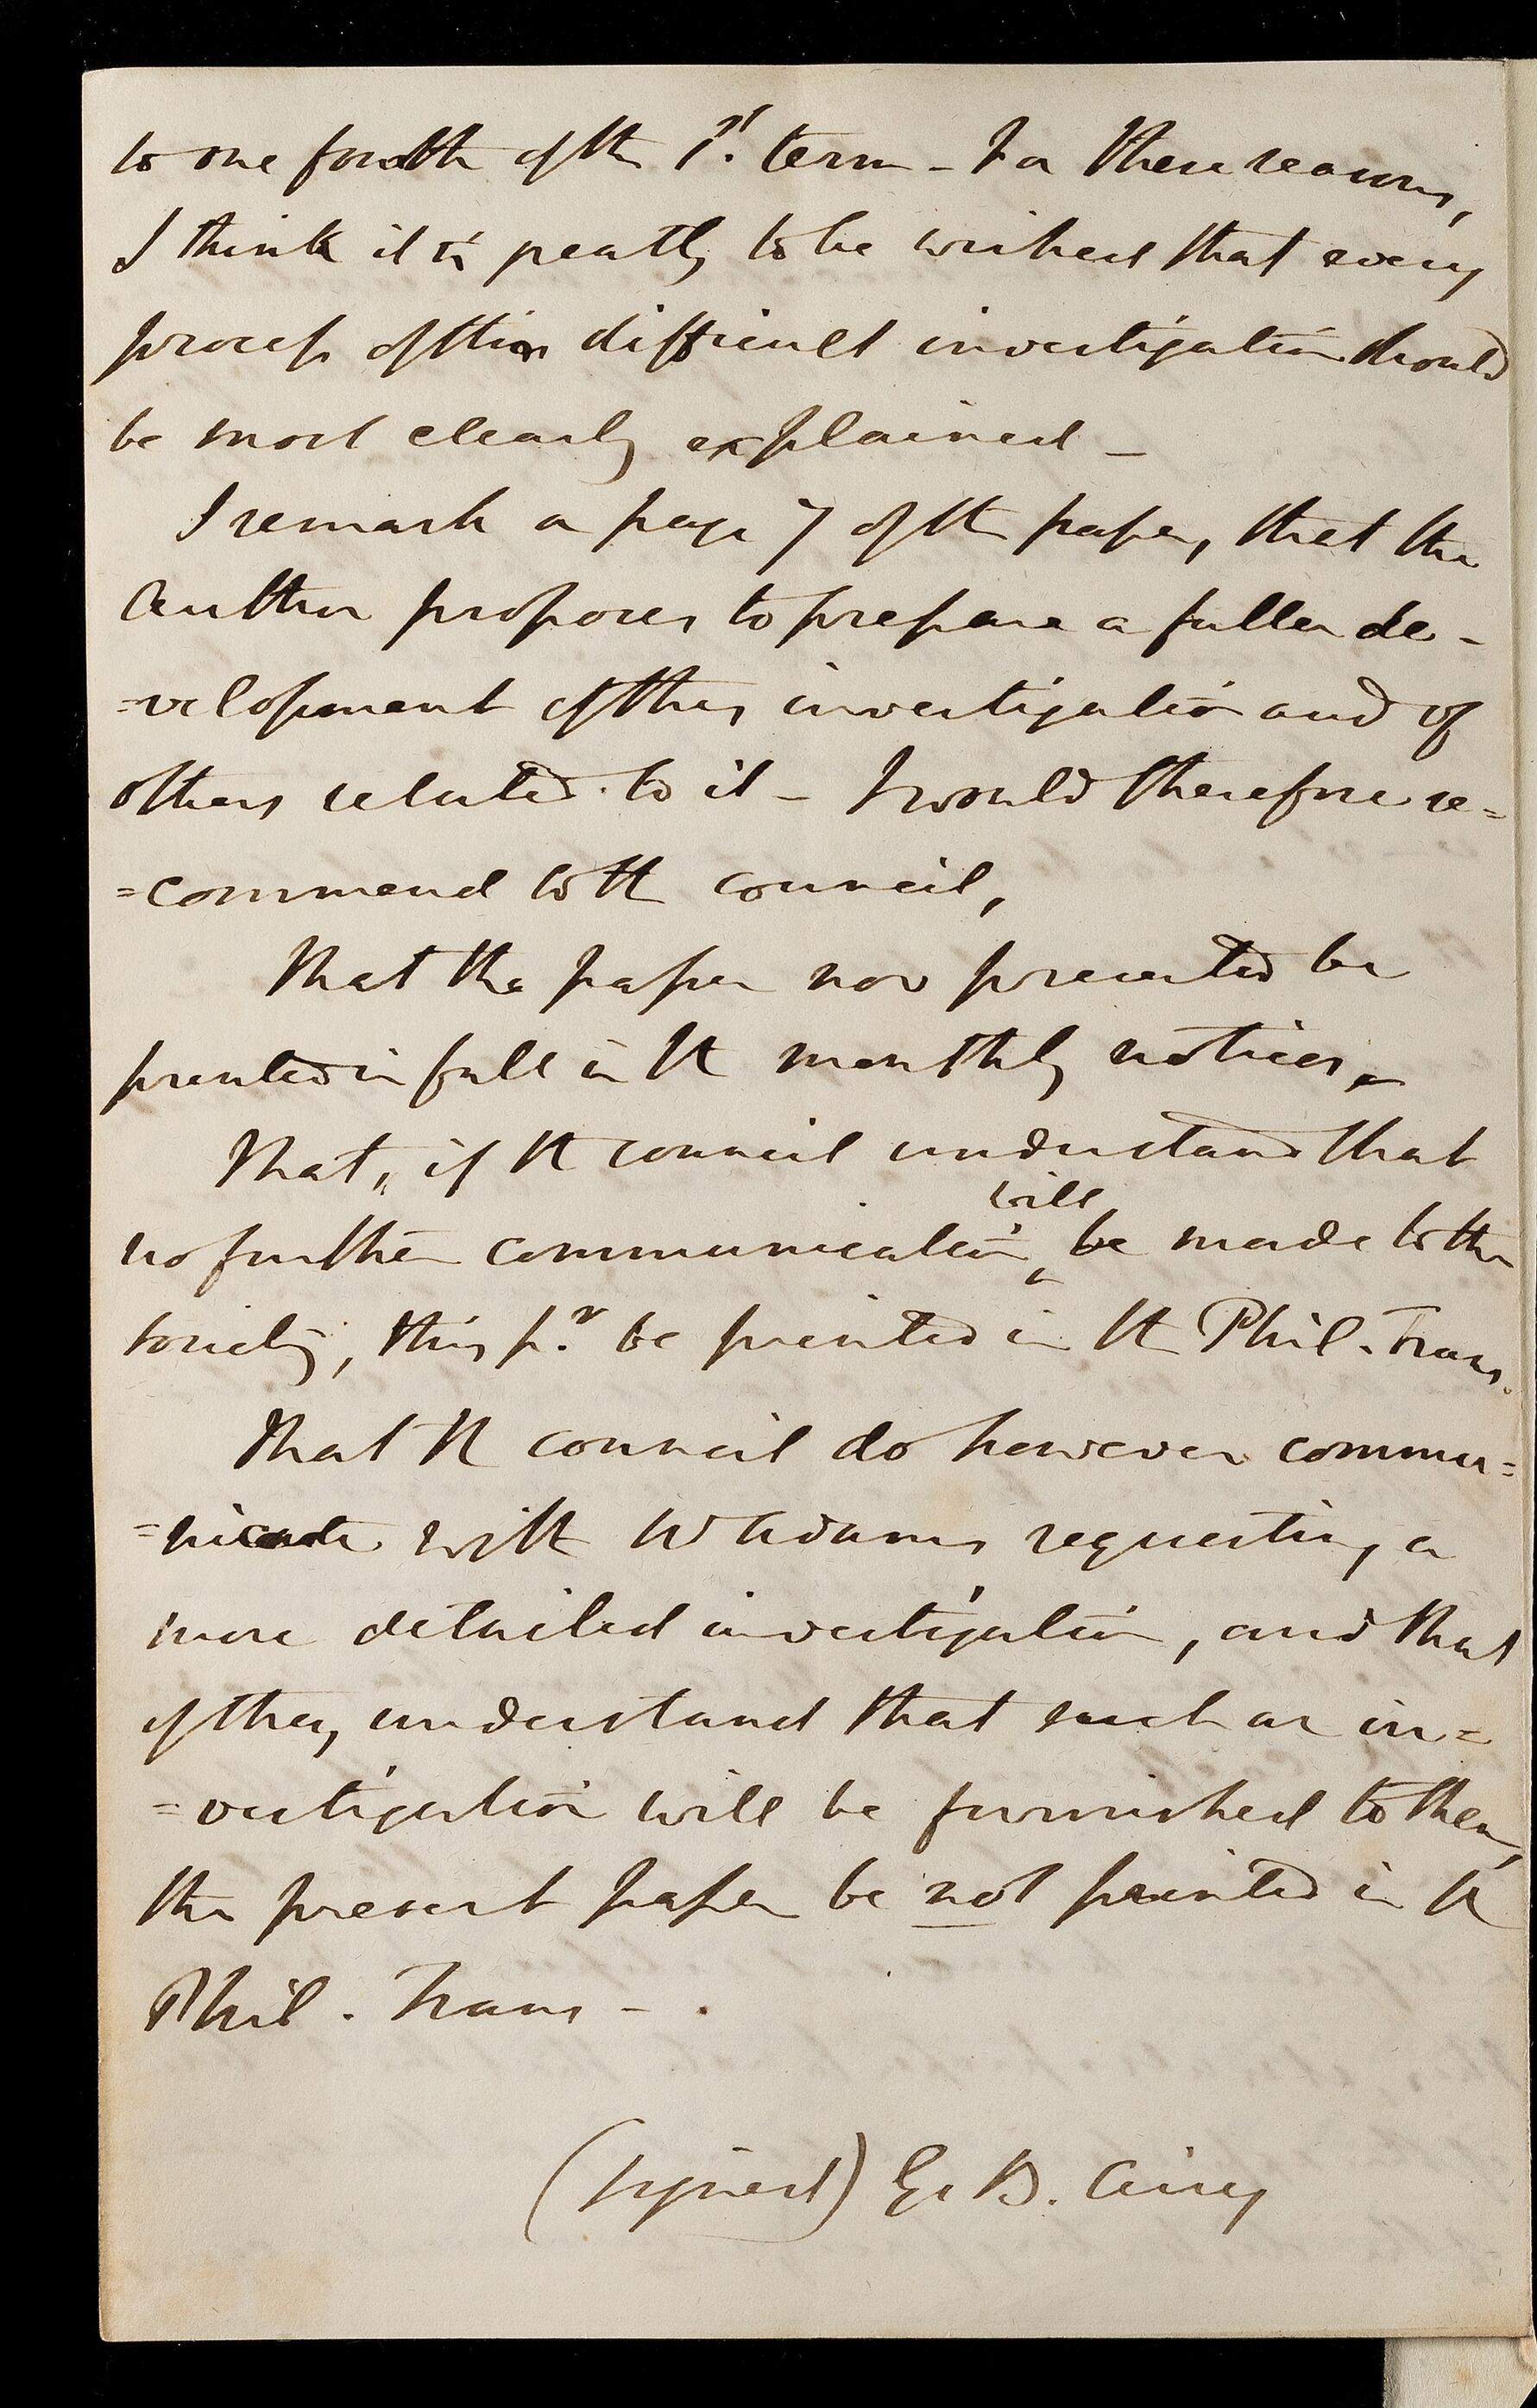 to one fourth of the 1st. term - For these reasons,
I think it is greatly to be wished that every
process of this difficult investigation should
be most clearly explained -
I remark a page 7 of the paper, that the
Author proposes to prepare a fuller de-
=velopment of this investigation and of
others related to it - I would therefore re=
=commend to the council,
That the paper now presented be
printed in full in the monthly notices,
That, if the council understand that
will
no further communication ‸ be made to the
society, this pr. be printed in the Phil. Trans.
That the council do however commu=
=nicate with Mr Adams requesting a
more detailed investigation, and that
if they understand that such an in=
=vestigation will be furnished to them,
the present paper be not printed in the
Phil. Trans -.
(signed) G. B. Airy